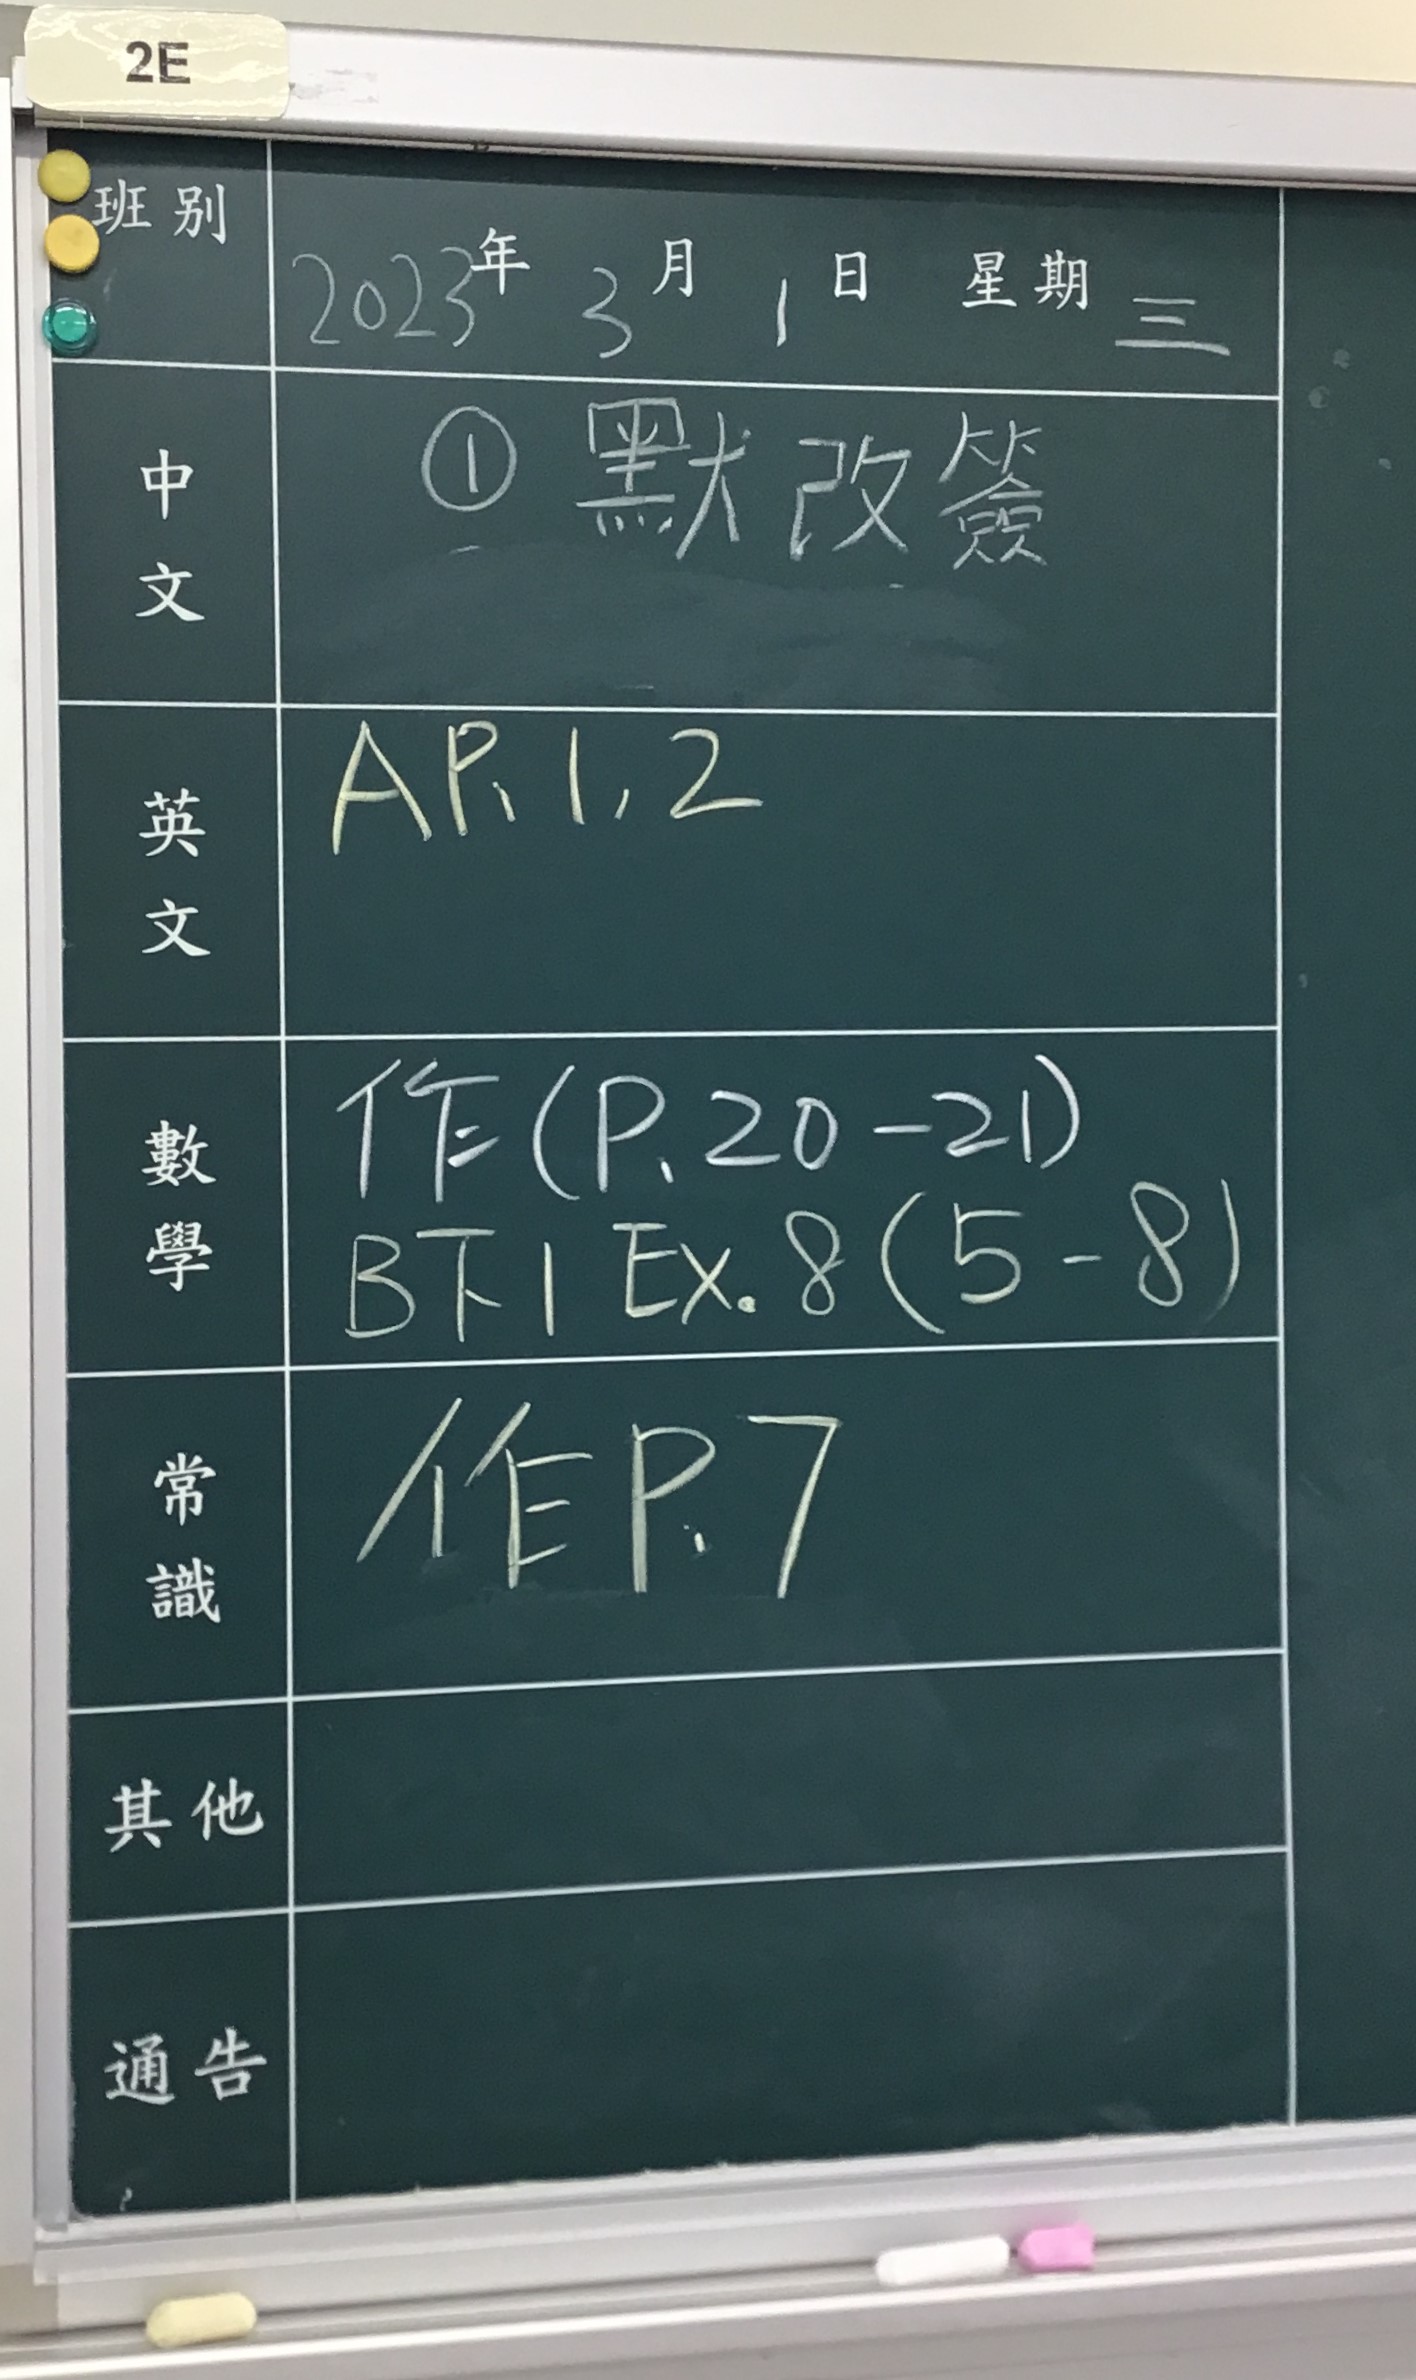 2E
班別
2023年 3月 1日 星期三
中文
① 默改簽
英文
A P. 1, 2
數學
作 (P. 20 - 21)
B下1 Ex. 8 (5 - 8)
常識
作 P. 7
其他
通告